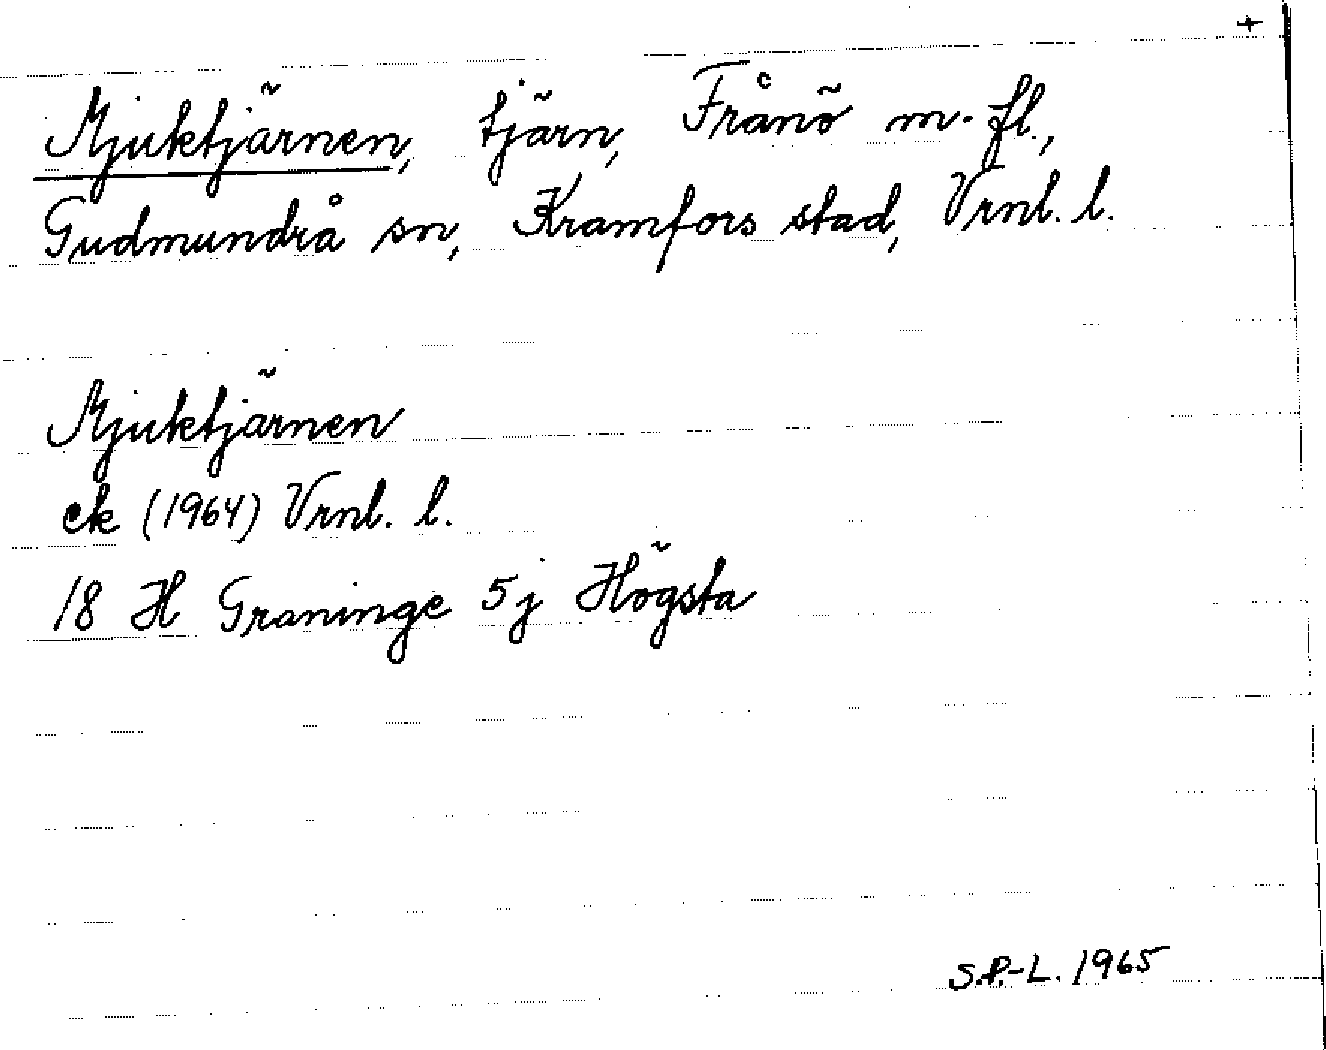 +
Mjuktjärnen, tjärn, Frånö m. fl.,
Gudmundrå sn, Kramfors stad, Vrnl. l.
Mjuktjärnen
ek (1964) Vrnl. l.
18 H Graninge 5j Högsta
S.P.-L. 1965